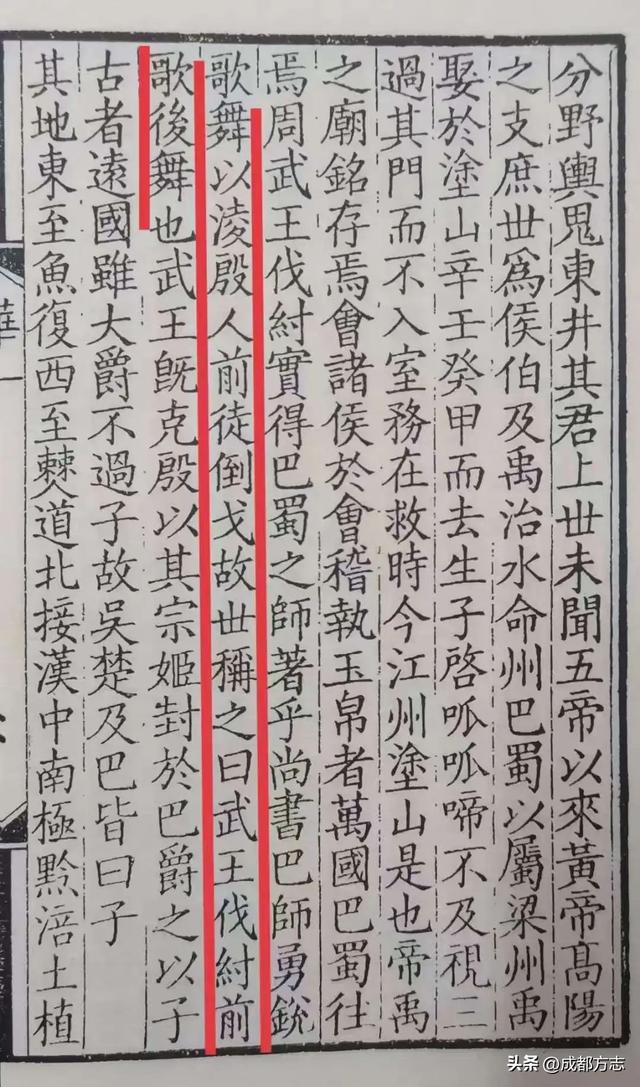 分野輿鬼東井其君上世未聞五帝以來黃帝髙陽
之支庶世爲侯伯及禹治水命州巴蜀以屬梁州禹
娶於塗山辛壬癸甲而去生子啓呱呱啼不及視三
過其門而不入室務在救時今江州塗山是也帝禹
之廟銘存焉會諸侯於會稽執玉帛者萬國巴蜀往
焉周武王伐紂實得巴蜀之師著乎尚書巴師勇銳
歌舞以凌殷人前徒倒戈故世稱之曰武王伐紂前
歌後舞也武王旣克殷以其宗姬封於巴爵之以子
古者遠國雖大爵不過子故吳楚及巴皆曰子
其地東至魚復西至僰道北接漢中南極黔涪土植
華
头条 @成都方志